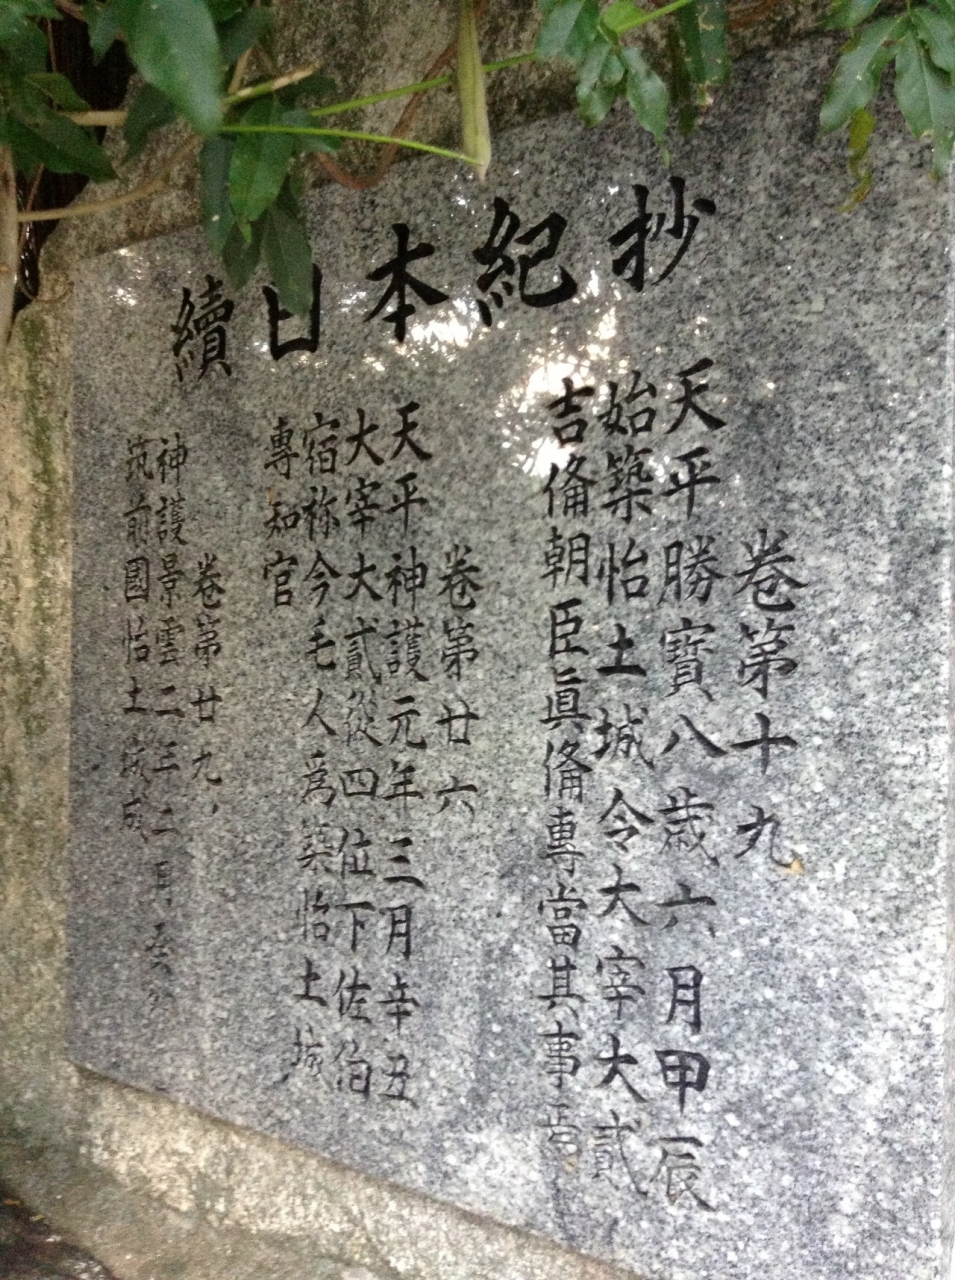 續日本紀抄
卷第十九
天平勝寶八歳六月甲辰
始築怡土城令大宰大貳
吉俻朝臣眞俻專當其事焉
卷第廿六
天平神護元年三月辛丑
大宰大貳從四位下佐伯
宿祢今毛人爲築怡土城
專知官
卷第廿九
神護景雲二年二月癸卯
筑前國怡土城成